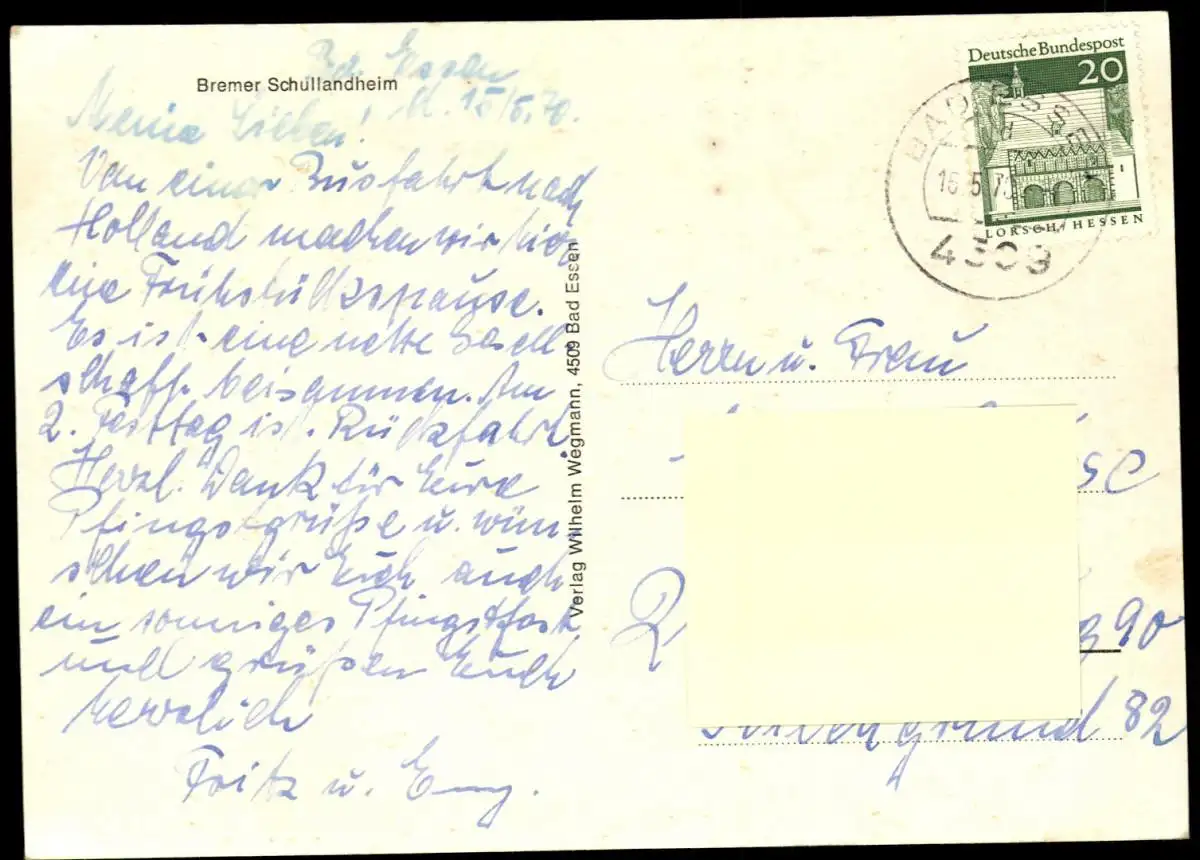 Bremer Schullandheim
Bad Essen
d. 15/5.70.
Meine Lieben!
Von einer Busfahrt nach
Holland machen wir hier
eine Frühstückspause.
Es ist eine nette Gesell-
schaft beisammen. Am
2. Festtag ist Rückfahrt.
Herzl. Dank für Eure
Pfingstgrüße u. wün-
schen wir Euch auch
ein sonniges Pfingstfest
und grüßen Euch
herzlich
Fritz u.
Verlag Wilhelm Wegmann, 4509 Bad Essen
Deutsche Bundespost
20
LORSCH/HESSEN
BAD ESSEN
15.5.70
4509
Herrn u. Frau
90
grund 82